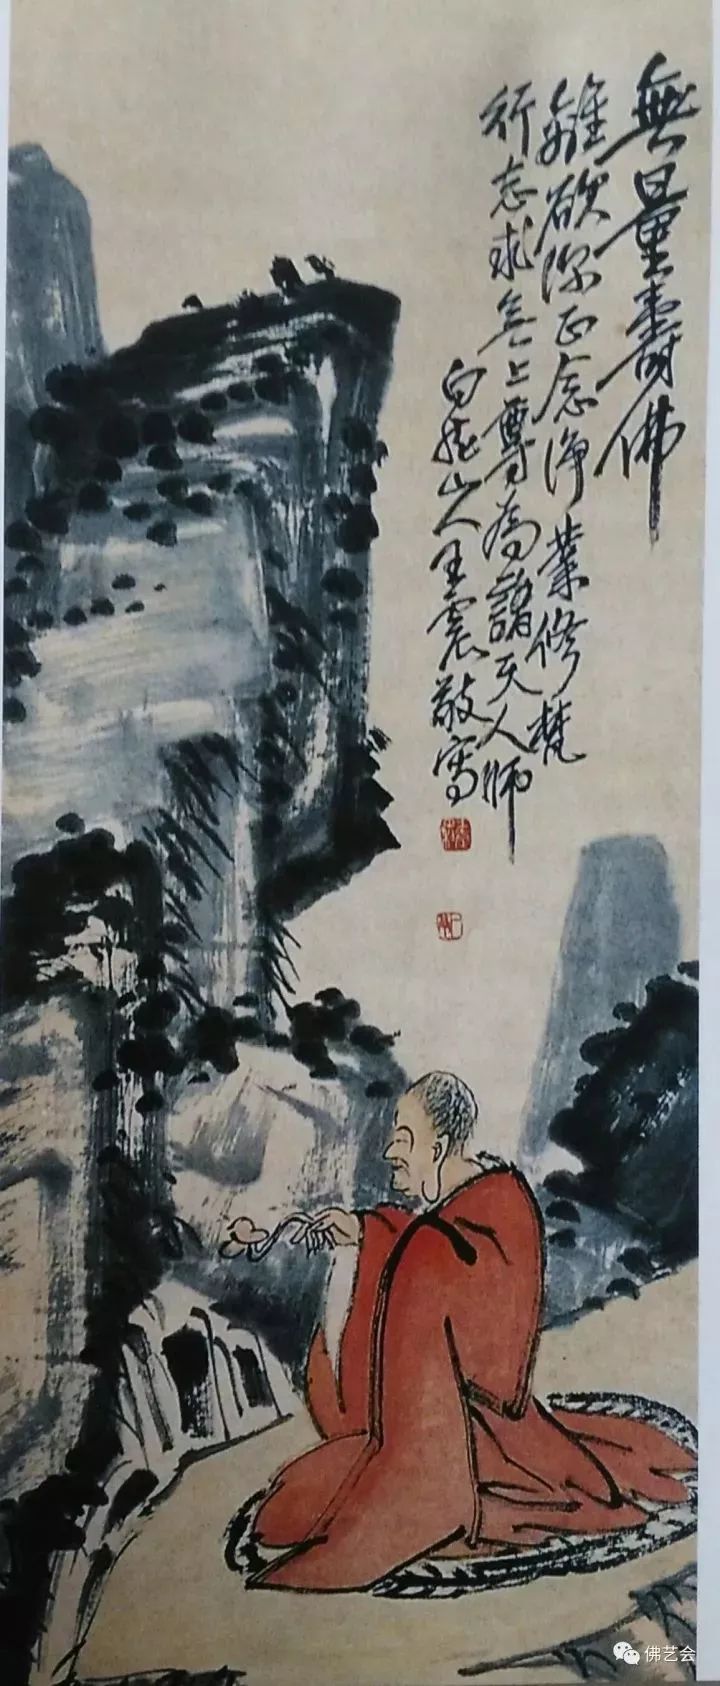 無量壽佛
離欲深正念淨業修梵
行志求無上尊為諸天人師
白龍山人王震敬寫
佛艺会